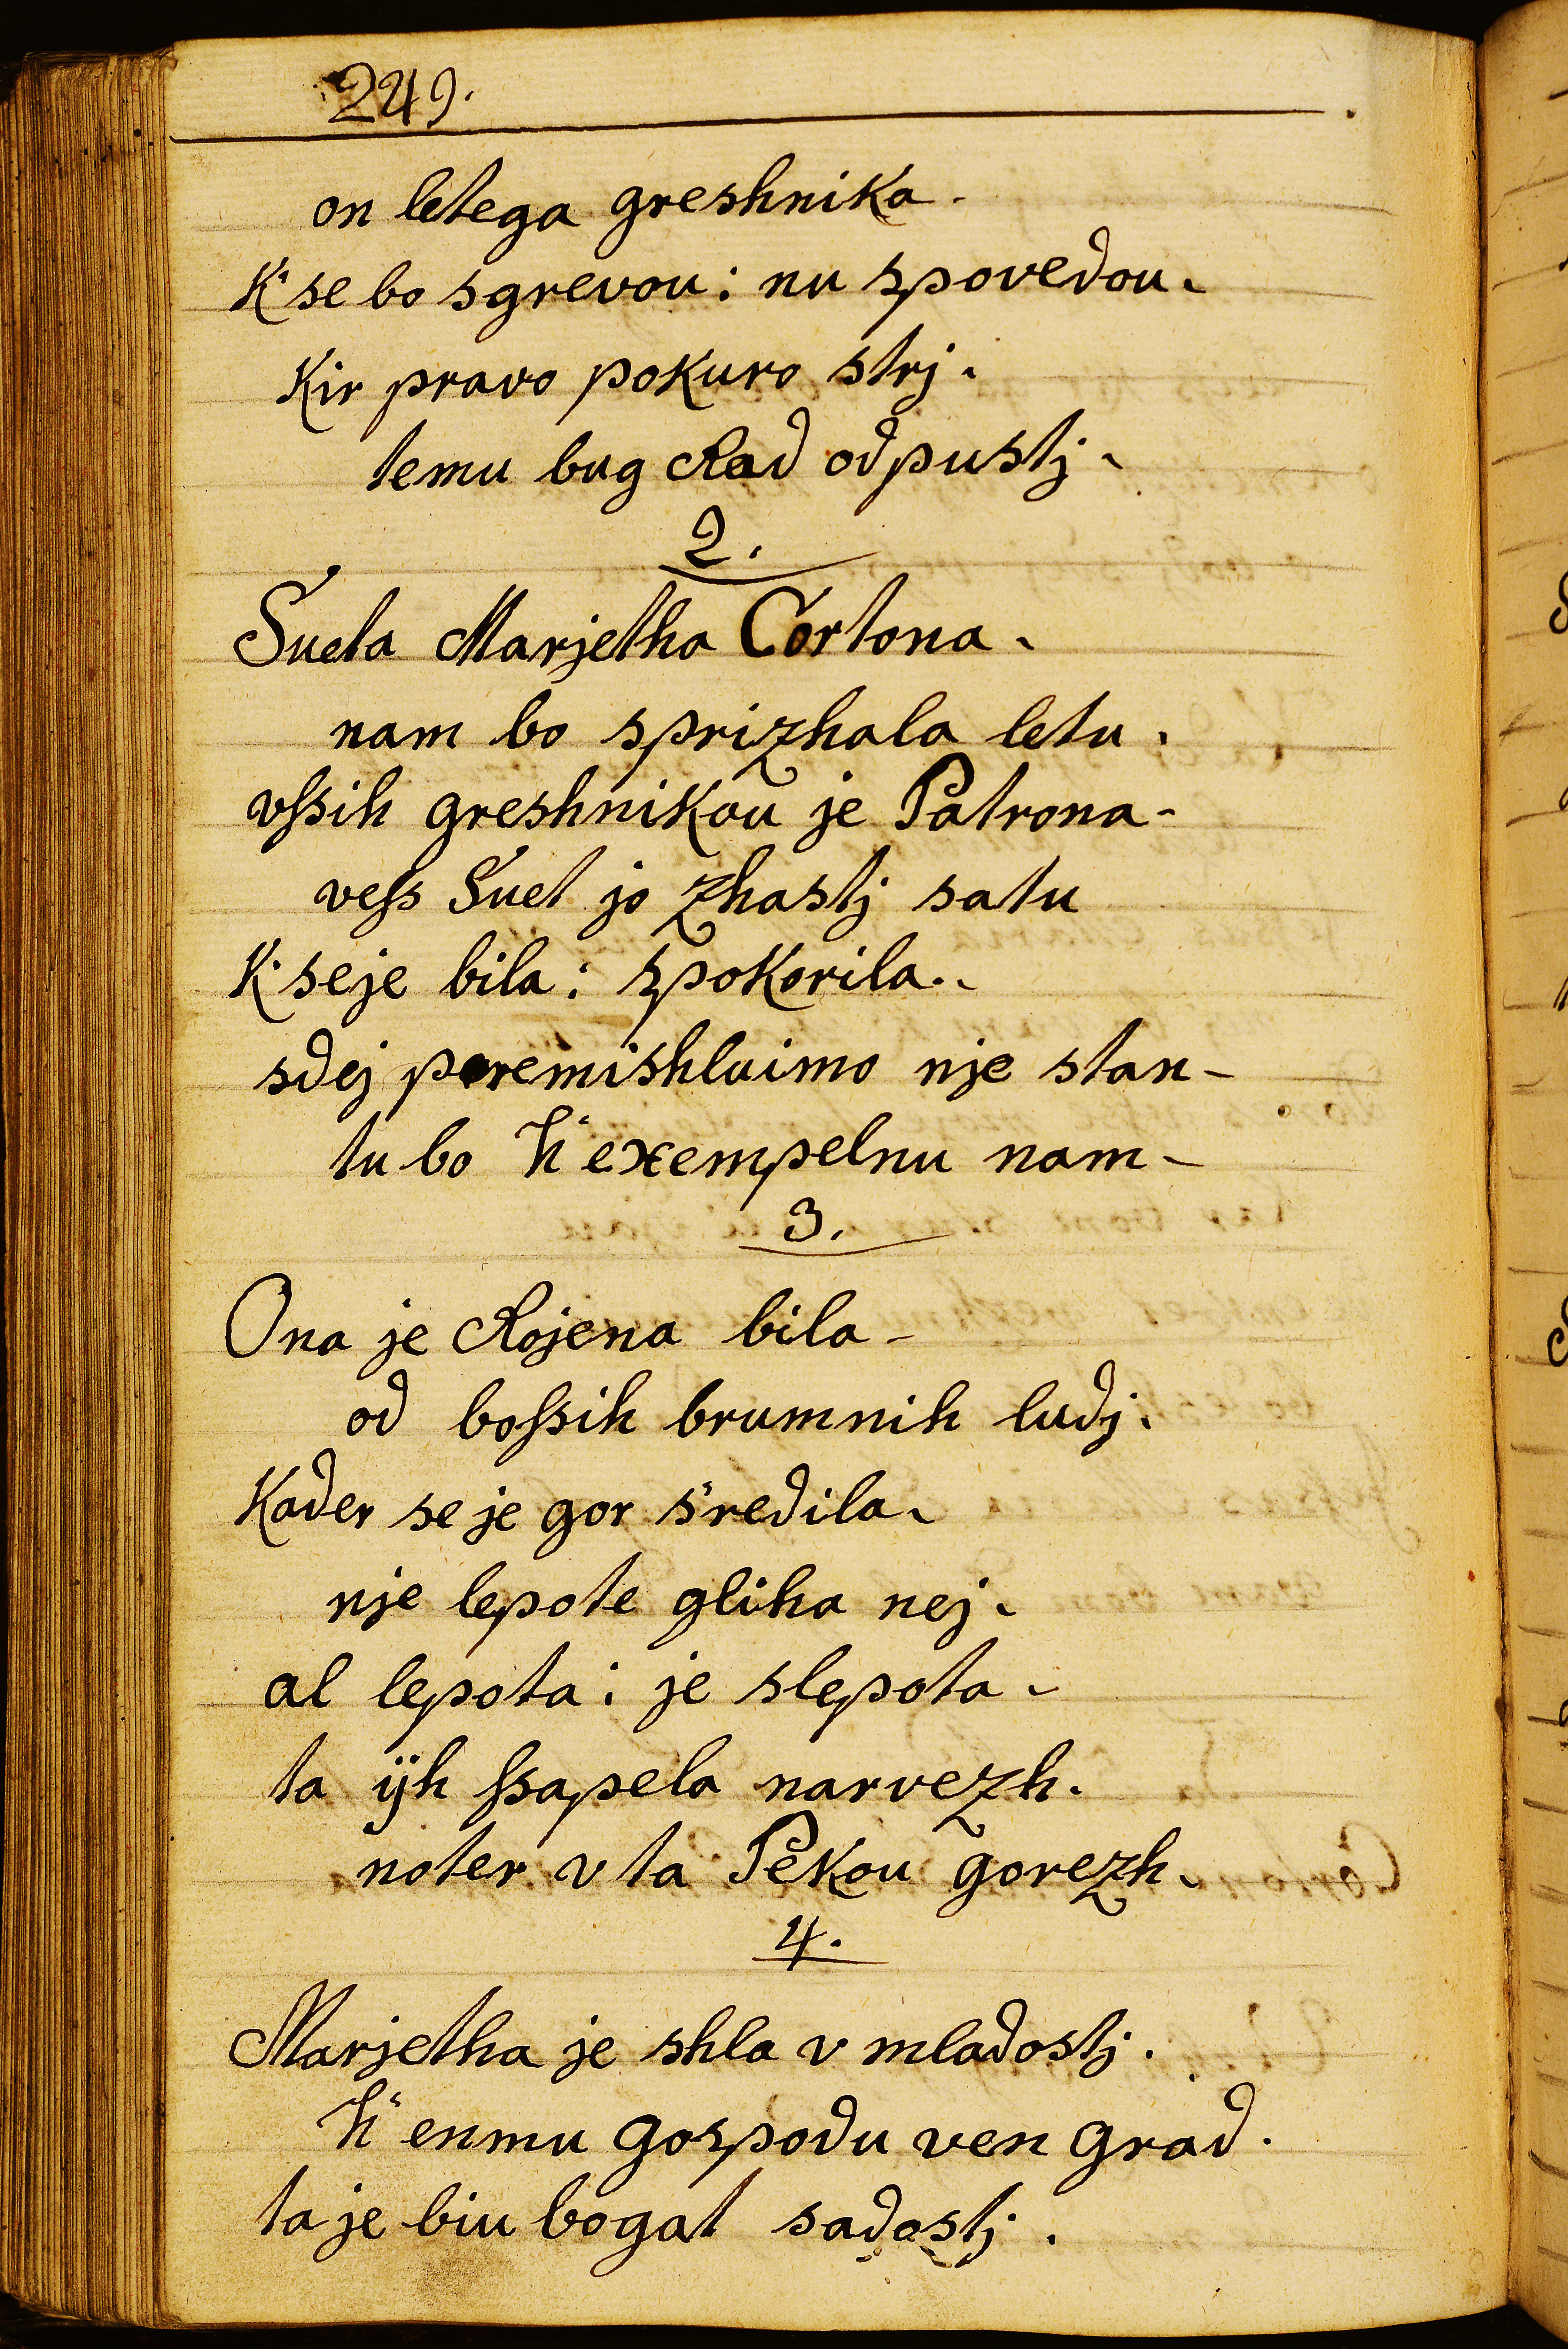 249.
on letega greshnika.
K' se bo sgrevou: nu spovedou.
Kir pravo pokuro strj.
temu bug Rad odpustj.
2.
Sueta Marjetha Cortona.
nam bo sprizhala letu.
vſsih greshnikou je Patrona-
veſs Suet jo zhastj satu
K' seje bila: spokorila..
sdej peremishluimo nje stan-
tu bo k' exempelnu nam-
3.
Ona je Rojena bila-
od boſsih brumnih ludj.
Kader se je gor s'redila.
nje lepote gliha nej.
al lepota: je slepota.
ta ijh ſsapela narvezh.
noter v ta Pekou gorezh.
4.
Marjetha je shla v mladostj.
k' enmu gospodu ven grad.
ta je biu bogat sadostj.